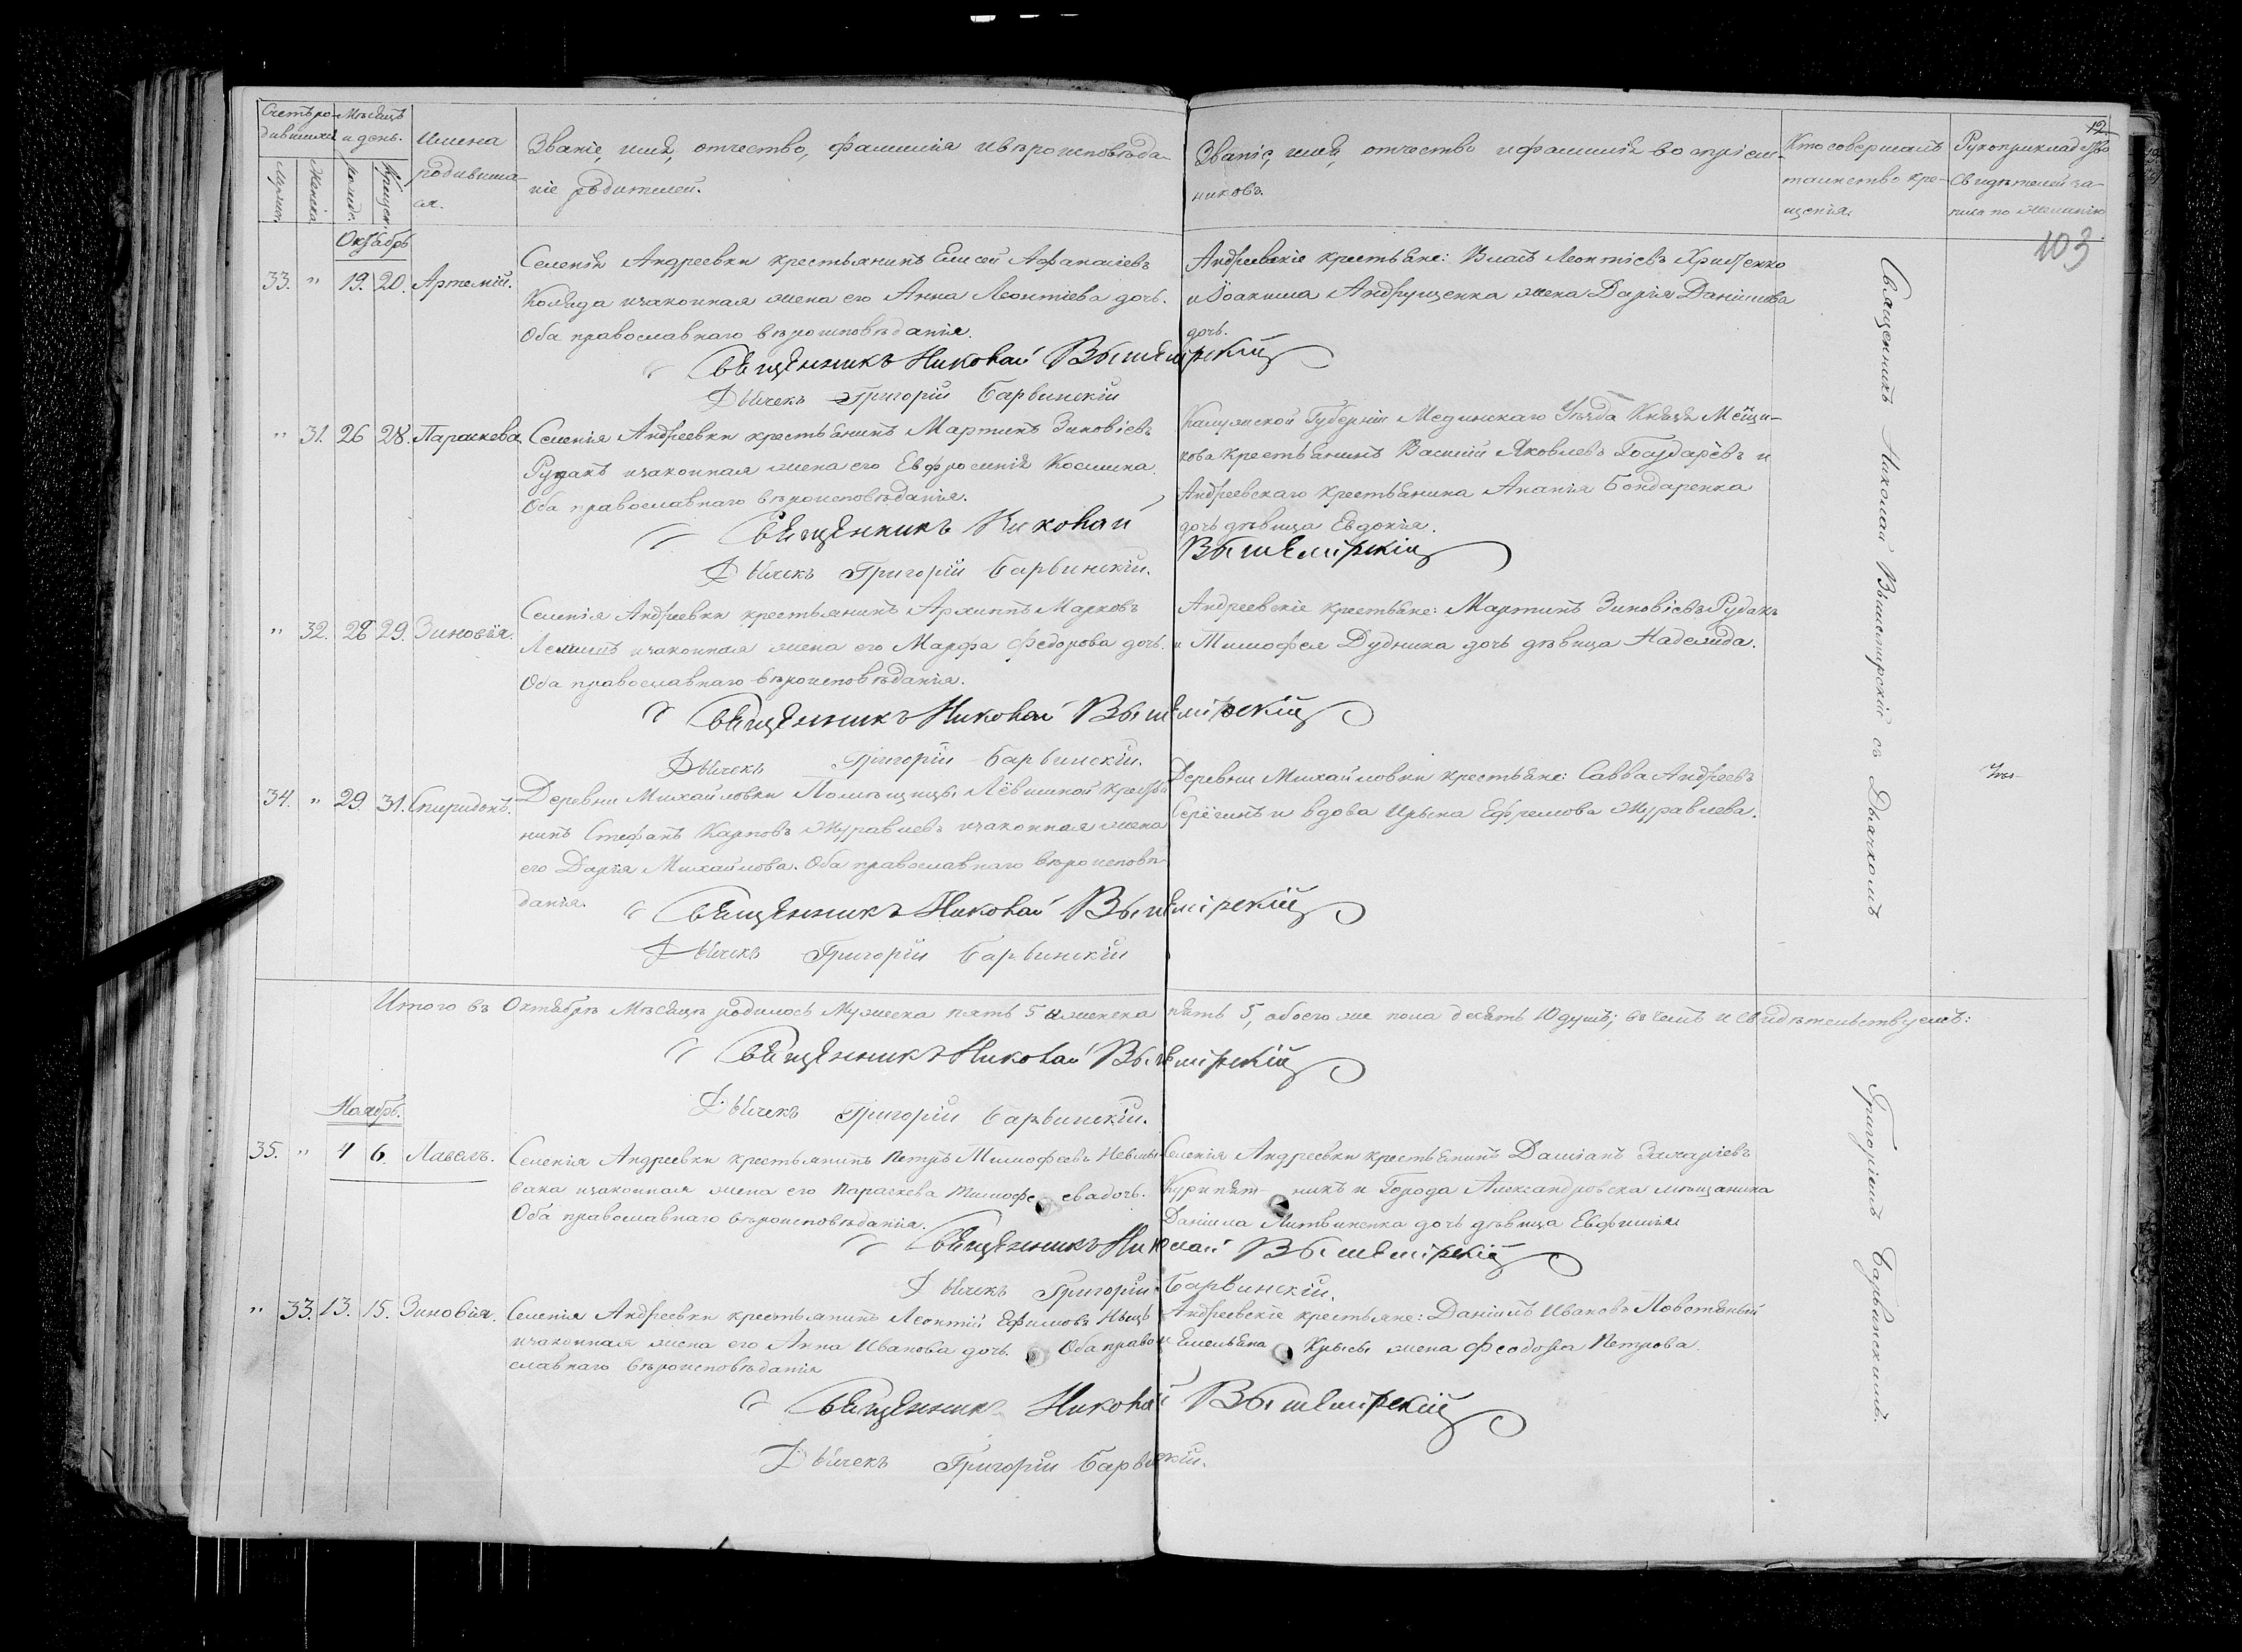 12.
103
Счетъ ро- Мѣсяцъ
дившихся и день.
Мужеск. Женска. Рожде. Крещен.
Имена
родивша-
ся.
Званіе, имя, отчество, фамилія и вѣроисповѣда-
ніе родителей.
Званіе, имя, отчество и фамилія воспріем-
никовъ.
Кто совершалъ
таинство кре-
щенія.
Рукоприкладство
свидѣтелей за-
писи по желанію
Октябрь
33. " 19. 20. Артемій.
Селенія Андреевки крестьянинъ Елисей Афанасіевъ
Коляда и законная жена его Анна Леонтіева дочь.
Оба православнаго вѣроисповѣданія.
Андреевскіе крестьяне: Власъ Леонтіевъ Христенко
и Іоакима Андрущенка жена Дарія Даніилова
дочь.
Священникъ Николай Вышемірскій
Дьячекъ Григорій Барвинскій
" 31. 26 28. Параскева.
Селенія Андреевки крестьянинъ Мартинъ Зиновіевъ
Рудакъ и законная жена его Евфросинія Космина.
Оба православнаго вѣроисповѣданія.
Калужской Губерніи Медынскаго Уѣзда Князя Мещи-
кова крестьянинъ Василій Яковлевъ Государевъ и
Андреевскаго крестьянина Ананія Бондаренка
дочь дѣвица Евдокія.
Священникъ Николай Вышемірскій
Дьячекъ Григорій Барвинскій.
" 32. 28 29. Зиновія.
Селенія Андреевки крестьянинъ Архиппъ Марковъ
и законная жена его Марфа Федорова дочь.
Оба православнаго вѣроисповѣданія.
Андреевскіе крестьяне: Мартинъ Зиновіевъ Рудакъ
и Тимофея Дудника дочь дѣвица Надежда.
Священникъ Николай Вышемірскій
Дьячекъ Григорій Барвинскій.
34. " 29. 31. Спиридонъ.
Деревни Михайловки Помѣщицы Лёвшиной крестья
нинъ Стефанъ Карповъ Журавлевъ и законная жена
его Дарія Михайлова. Оба православнаго вѣроисповѣ-
данія.
Деревни Михайловки крестьяне: Савва Андреевъ
Серёгинъ и вдова Ирына Ефремова Журавлева.
Священникъ Николай Вышемірскій
Дьячекъ Григорій Барвинскій
Итого въ Октябрѣ Мѣсяцѣ родилось Мужеска пять 5 и женска пять 5, обоего же пола десять 10 душъ; въ чемъ и свидѣтельствуемъ:
Священникъ Николай Вышемірскій
Дьячекъ Григорій Барвинскій.
Ноябрь.
35. " 4 6. Павелъ.
Селенія Андреевки крестьянинъ Петръ Тимофеевъ Невмы-
вака и законная жена его Параскева Тимофеева дочь.
Оба православнаго вѣроисповѣданія.
Селенія Андреевки крестьянинъ Даміанъ Захаріевъ
Курипятникъ и Города Александровска мѣщанина
Даніила Литвиненка дочь дѣвица Евфимія
Священникъ Николай Вышемірскій
Дьячекъ Григорій Барвинскій.
" 33. 13. 15. Зиновія.
Селенія Андреевки крестьянинъ Леонтій Ефимовъ
и законная жена его Анна Иванова дочь. Оба право-
славнаго вѣроисповѣданія
Андреевскіе крестьяне: Даніилъ Ивановъ
и Емельяна Крысы жена Феодора Петрова.
Священникъ Николай Вышемірскій
Дьячекъ Григорій Барвинскій.
Священникъ Николай Вышемірскій съ Дьячкомъ
Григоріемъ Барвинскимъ.